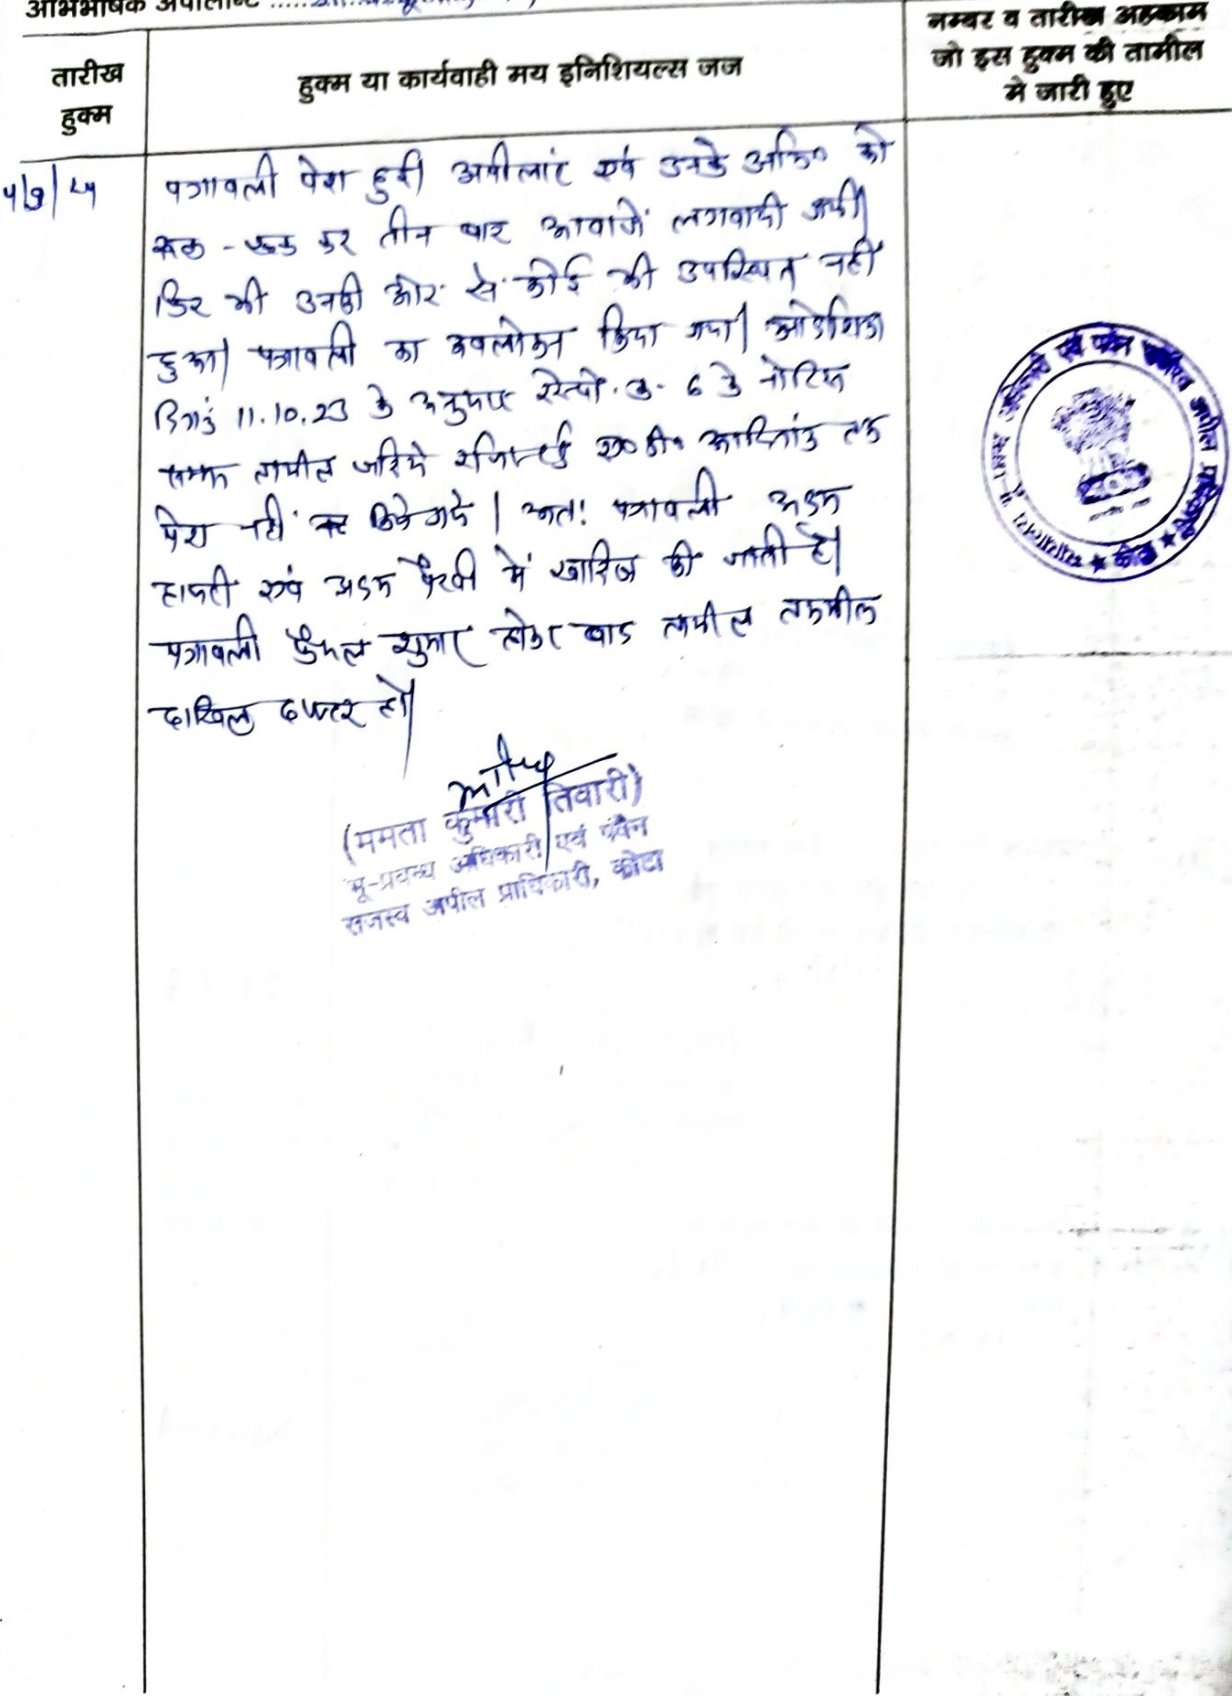 अभिभाषक अपीलान्ट .....
तारीख हुक्म
हुक्म या कार्यवाही मय इनिशियल्स जज
नम्बर व तारीख अहकाम
जो इस हुक्म की तामील
मे जारी हुए
पत्रावली पेश हुई। अपीलांट एवं उनके अभि० को
एक - एक कर तीन बार आवाजें लगवायी गयी।
फिर भी उनकी ओर से कोई भी उपस्थित नहीं
हुआ। पत्रावली का अवलोकन किया गया। आदेशिका
दिनांक 11.10.23 के अनुसार रेस्पो. क्र. 6 के नोटिस
तामील जरिये रजिस्टर्ड ए०डी० आदिनांक तक
पेश नहीं किये गये। अतः पत्रावली अदम
हाजरी एवं अदम पैरवी में खारिज की जाती है।
पत्रावली फैसल शुमार होकर बाद तामील तकमील
दाखिल दफ्तर हो।
(ममता कुमारी तिवारी)
भू-प्रबन्ध अधिकारी एवं पदेन
राजस्व अपील प्राधिकारी, कोटा